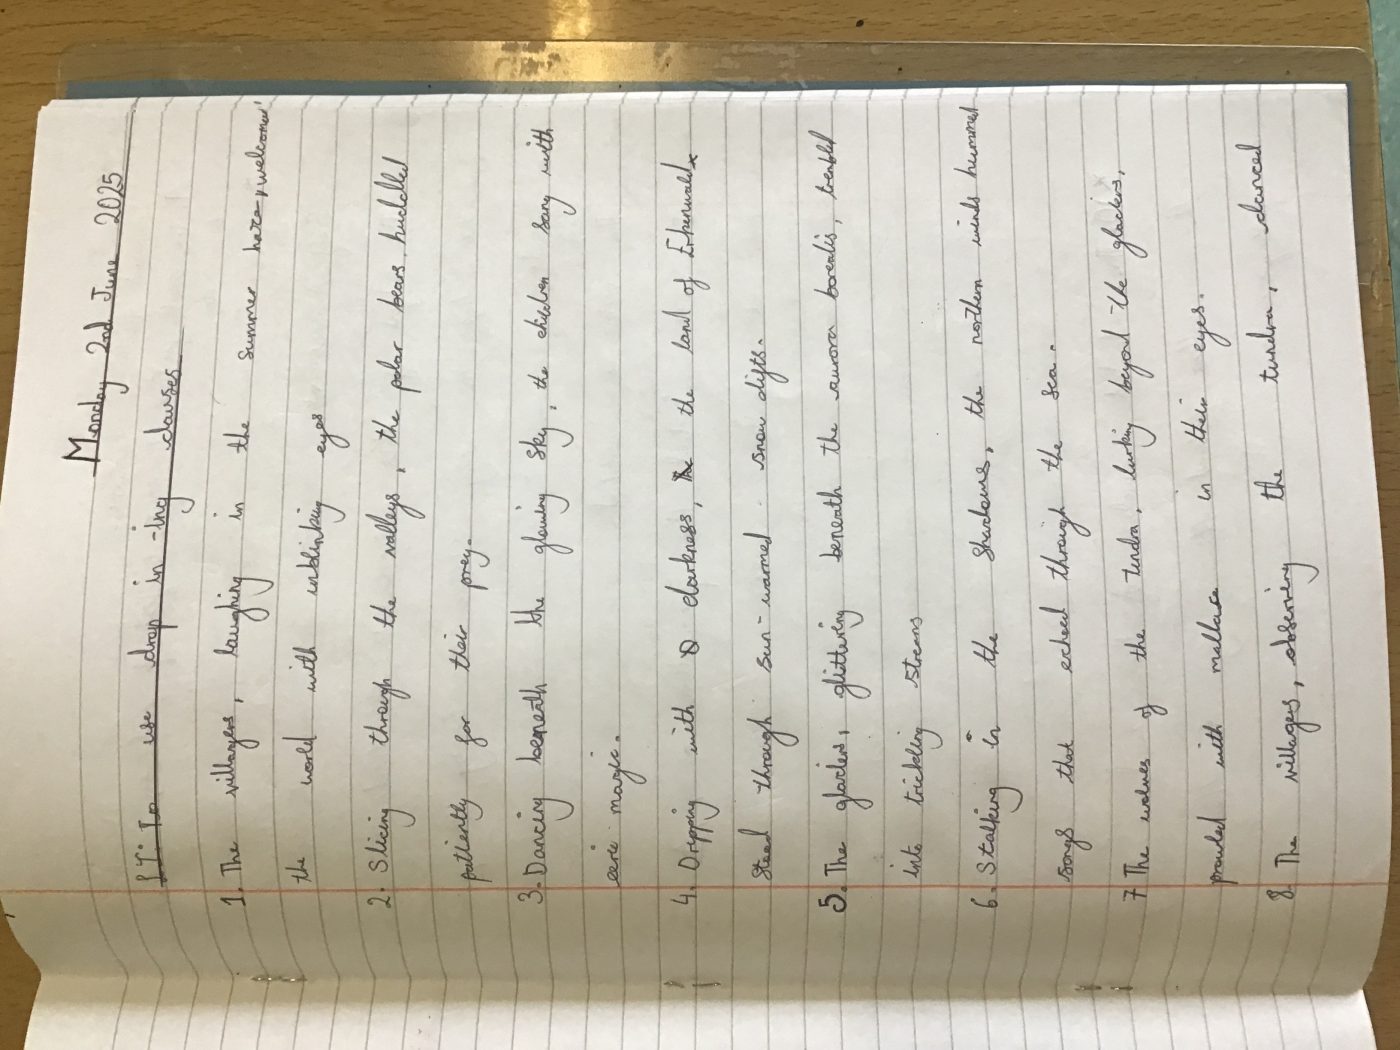 Monday 2nd June 2025
LI: To use drop in -ing clauses
1. The villagers, laughing in the summer haze, welcomed
the world with unblinking eyes
2. Slicing through the valleys, the polar bears huddled
patiently for their prey.
3. Dancing beneath the glowing sky, the children sang with
eerie magic.
4. Dripping with darkness, the land of
stood through sun-warmed snow difts.
5. The glaciers, glittering beneath the aurora borealis,
into trickling streams
6. Stalking in the Shadows, the northern winds hummed
songs that echoed through the sea.
7 The wolves of the tundra, lurking beyond the glaciers,
prowled with mallace in their eyes.
8. The villagers, observing the tundra, danced